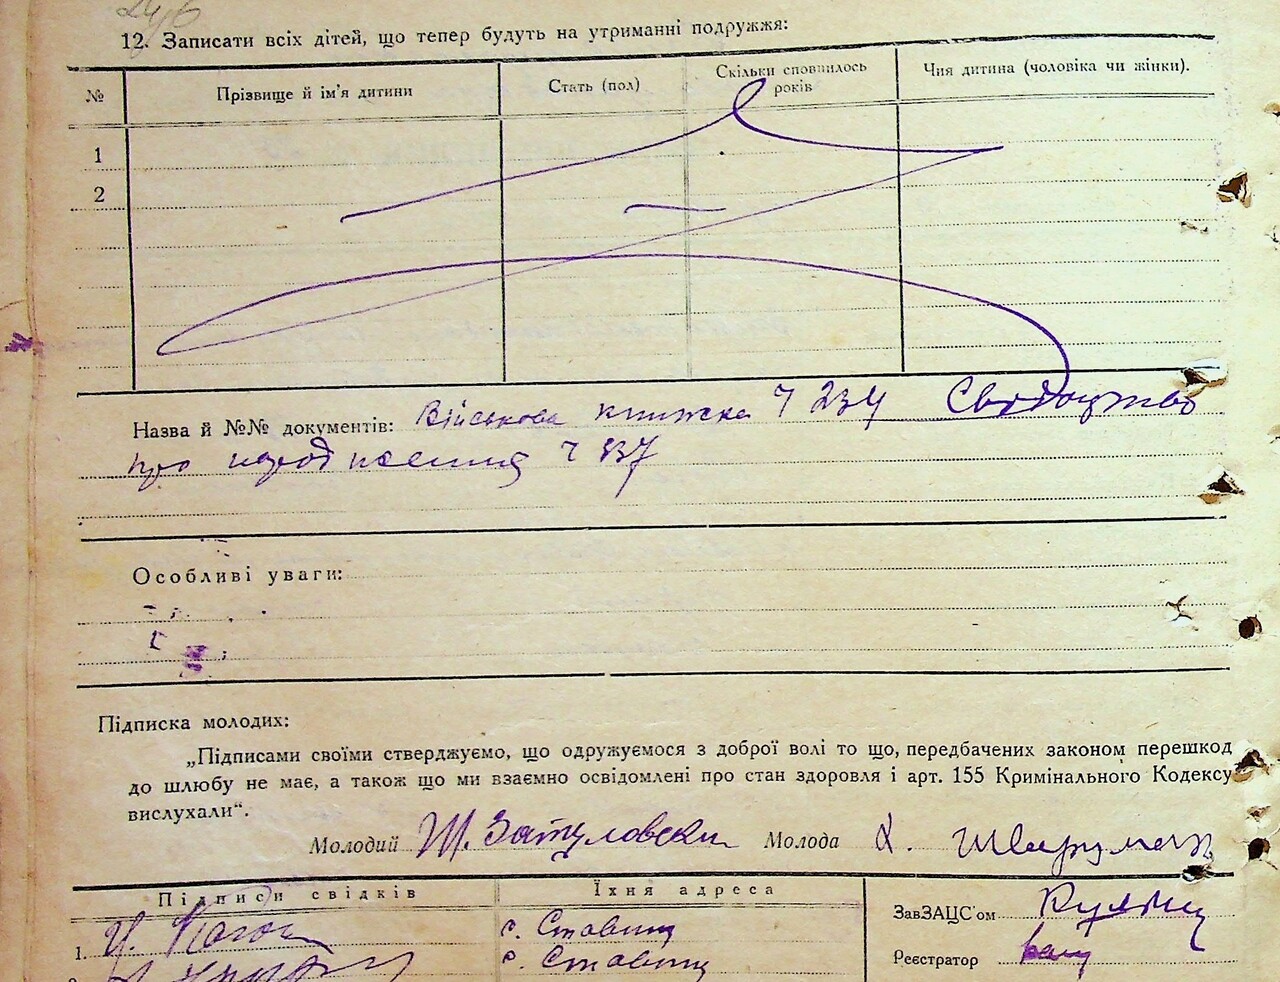 12. Записати всіх дітей, що тепер будуть на утриманні подружжя:
№ Прізвище й ім'я дитини Стать (пол) Скільки сповнилось років Чия дитина (чоловіка чи жінки).
1
2
Назва й №№ документів: Військова книжка Ч 234 Свідоцтво
про народження Ч 837
Особливі уваги:
Підписка молодих:
„Підписами своїми стверджуємо, що одружуємося з доброї волі то що, передбачених законом перешкод
до шлюбу не має, а також що ми взаємно освідомлені про стан здоровля і арт. 155 Кримінального Кодексу
вислухали".
Молодий Ш. Затуловски Молода Х.
Підписи свідків Їхня адреса
1. с. Ставищ
с. Ставищ
ЗавЗАЦС'ом
Реєстратор